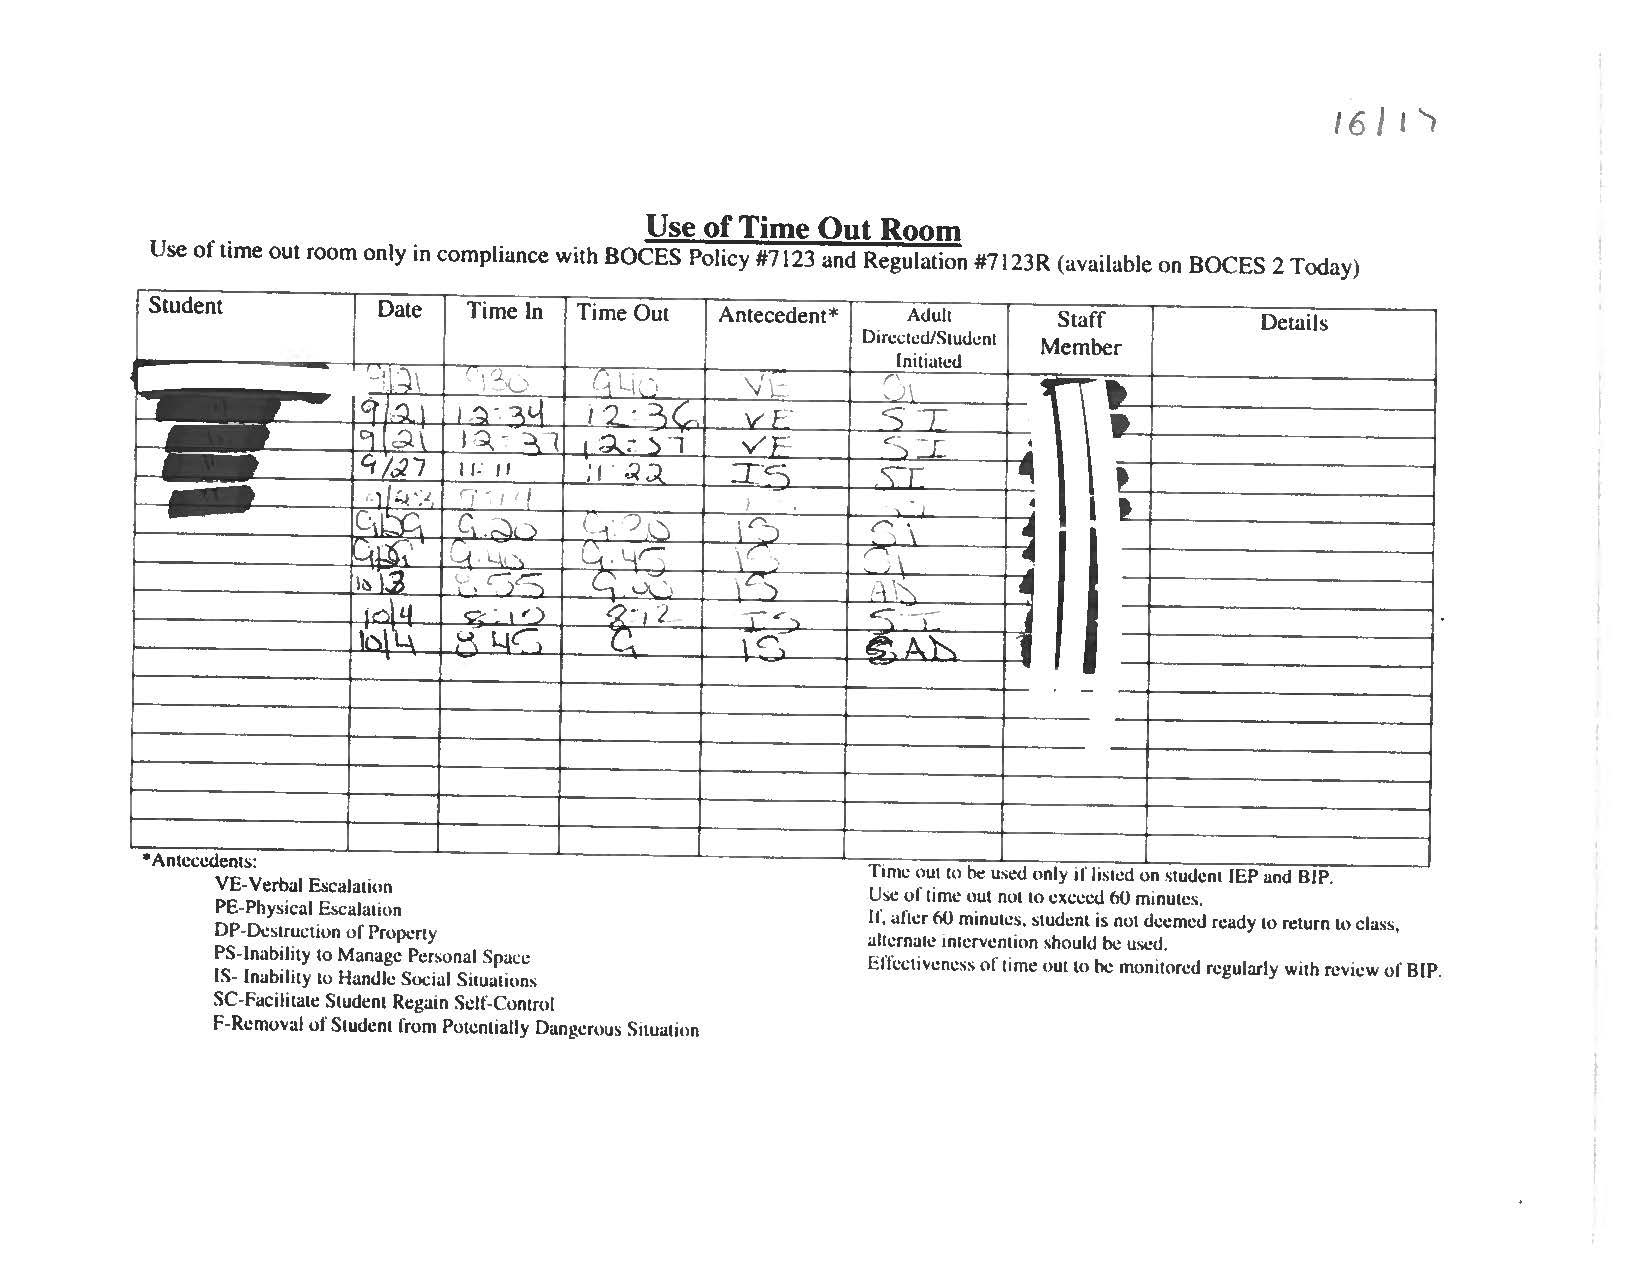 16/17
Use of Time Out Room
Use of time out room only in compliance with BOCES Policy #7123 and Regulation #7123R (available on BOCES 2 Today)
Student Date Time In Time Out Antecedent* Adult Directed/Student Initiated Staff Member Details
9/21 930 940 VE SI
9/21 12:34 12:36 VE SI
9/21 12:37 12:57 VE SI
9/27 11:11 11:22 IS SI
9/29 9:20 IS SI
9:40 9:45 IS SI
10/3 8:55 9:00 IS AD
10/4 8:10 8:12 IS SI
10/4 8 45 9 IS AD
*Antecedents:
VE-Verbal Escalation
PE-Physical Escalation
DP-Destruction of Property
PS-Inability to Manage Personal Space
IS- Inability to Handle Social Situations
SC-Facilitate Student Regain Self-Control
F-Removal of Student from Potentially Dangerous Situation
Time out to be used only if listed on student IEP and BIP.
Use of time out not to exceed 60 minutes.
If, after 60 minutes, student is not deemed ready to return to class,
alternate intervention should be used.
Effectiveness of time out to be monitored regularly with review of BIP.